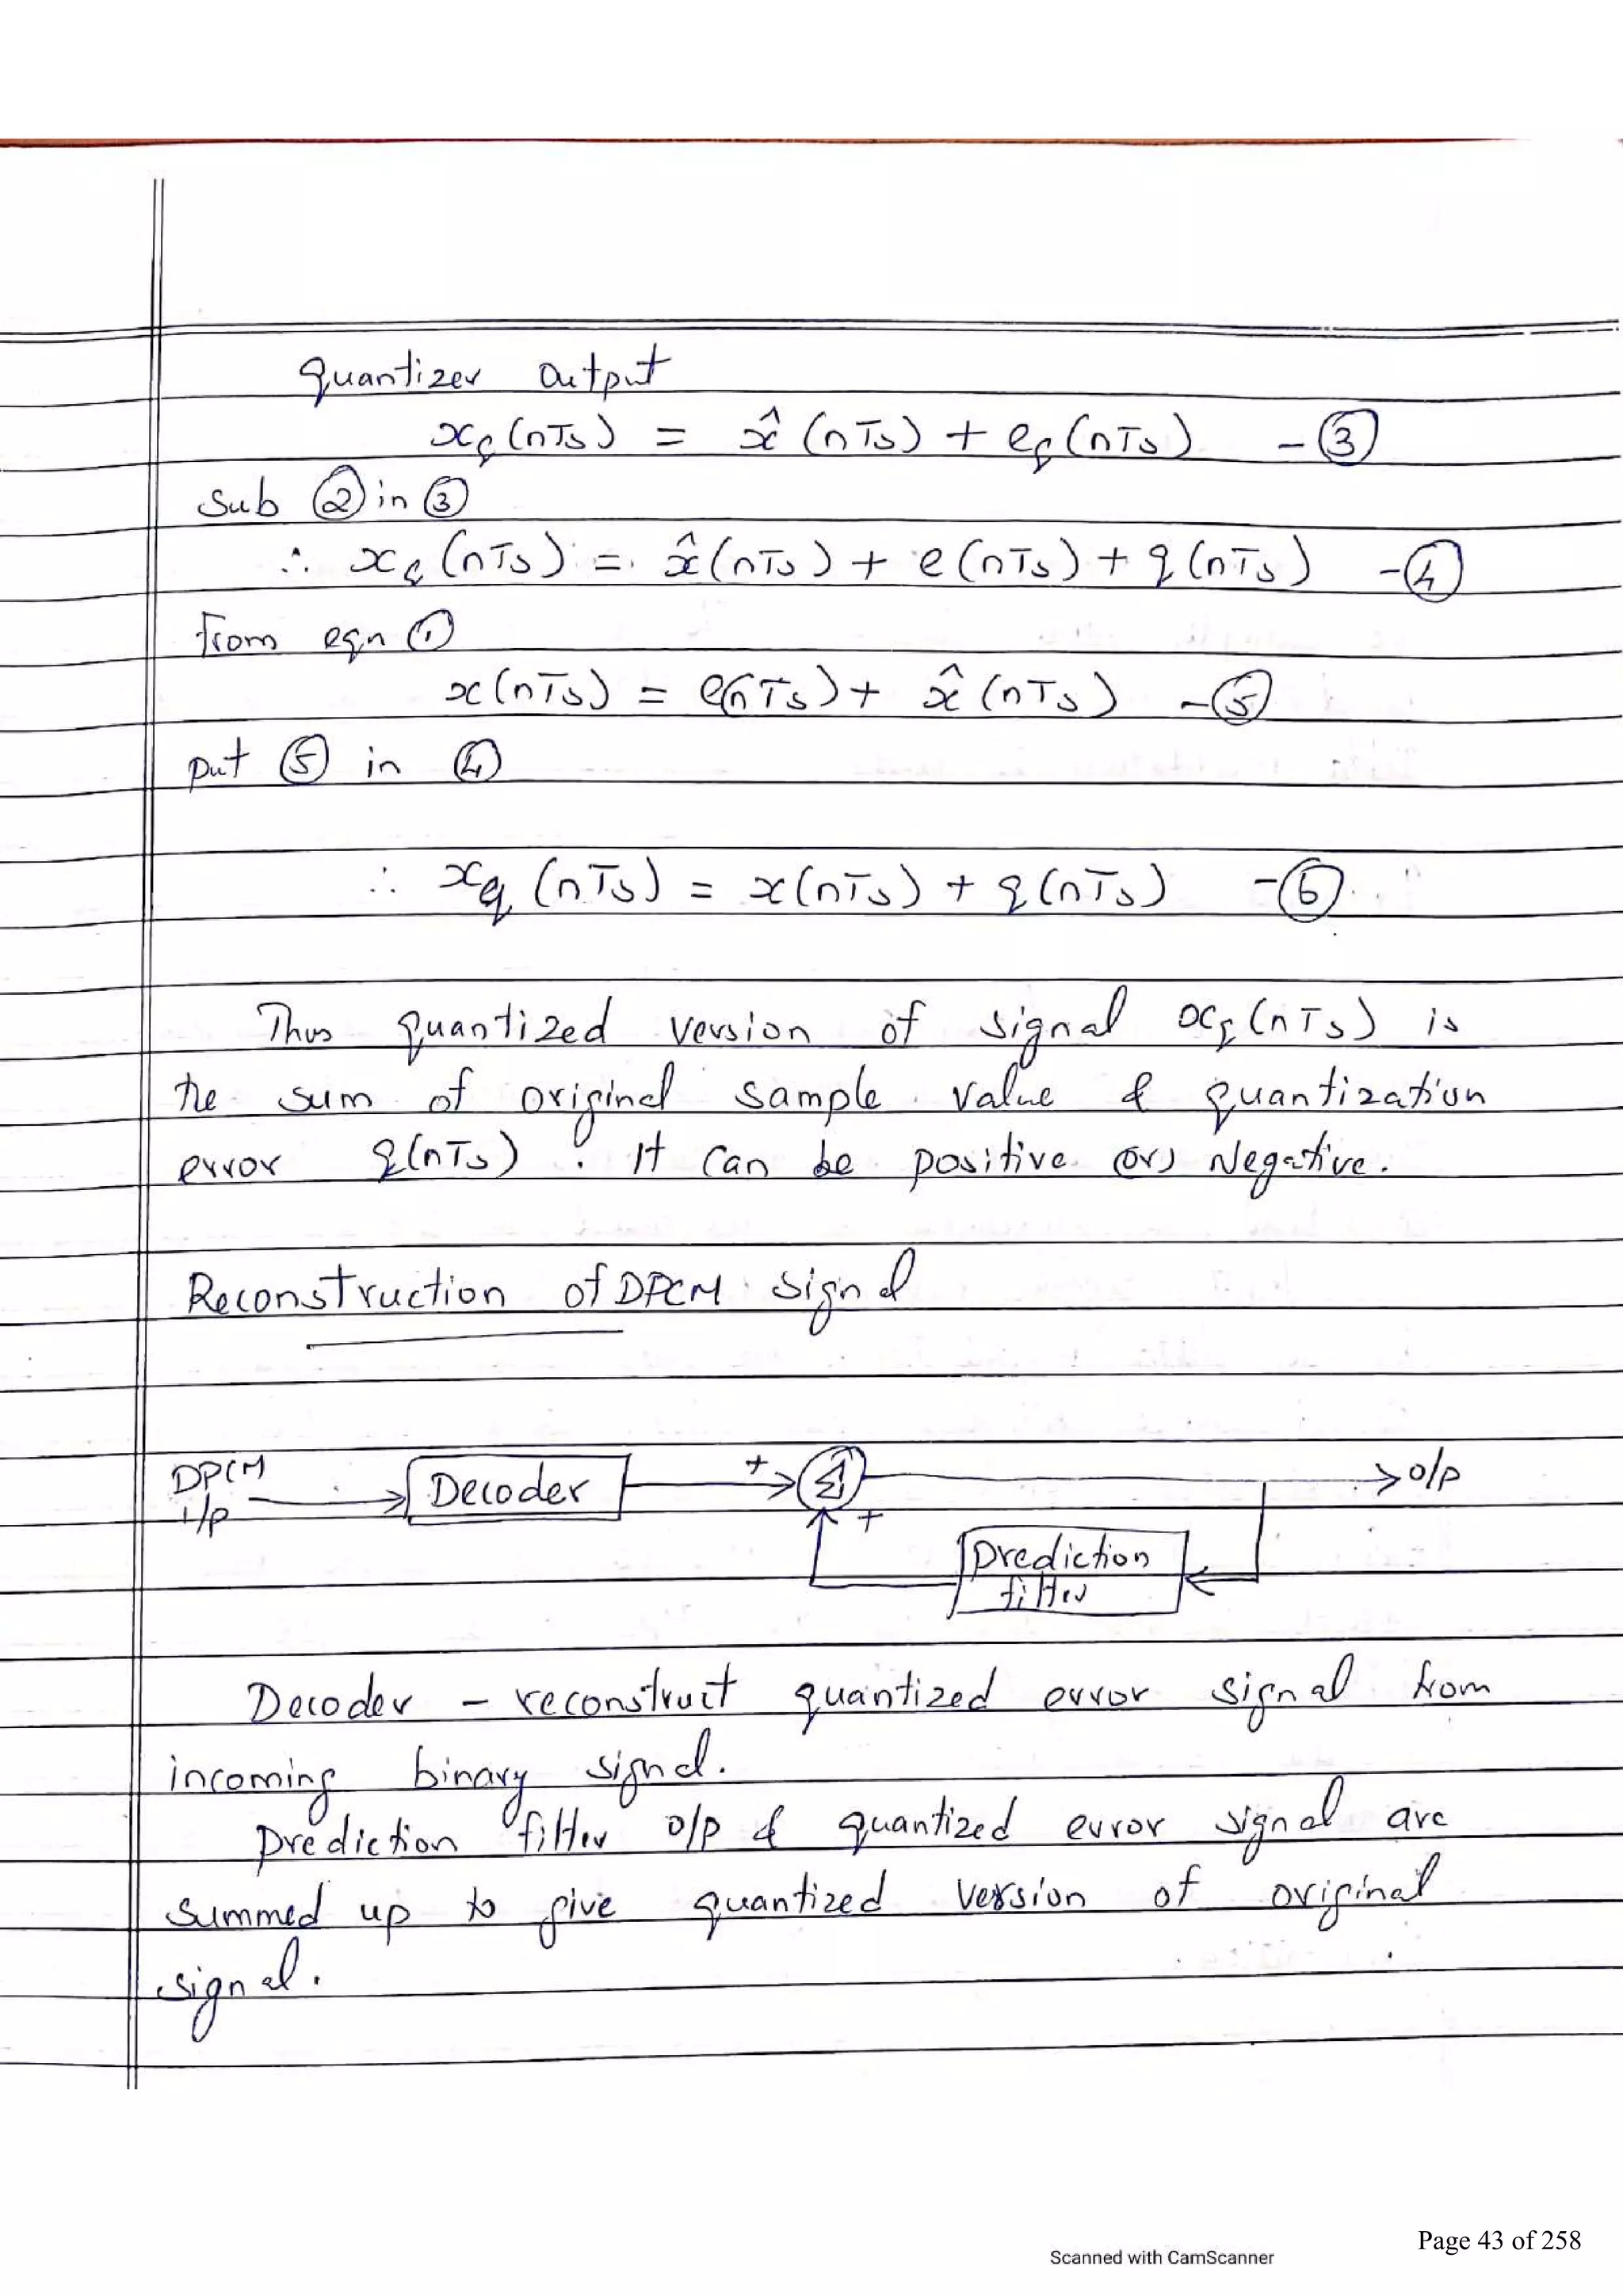 quantizer output
xq(nTs) = x̂(nTs) + eq(nTs) - ③
Sub ② in ③
∴ xq(nTs) = x̂(nTs) + e(nTs) + q(nTs) - ④
From eqn ①
x(nTs) = e(nTs) + x̂(nTs) - ⑤
put ⑤ in ④
∴ xq(nTs) = x(nTs) + q(nTs) - ⑥
Thus quantized version of signal xq(nTs) is
the sum of original sample value & quantization
error q(nTs). It can be positive (or) Negative.
Reconstruction of DPCM signal
DPCM
i/p
Decoder
+
Σ
o/p
+
prediction
filter
Decoder - reconstruct quantized error signal from
incoming binary signal.
prediction filter o/p & quantized error signal are
summed up to give quantized version of original
signal.
Page 43 of 258
Scanned with CamScanner